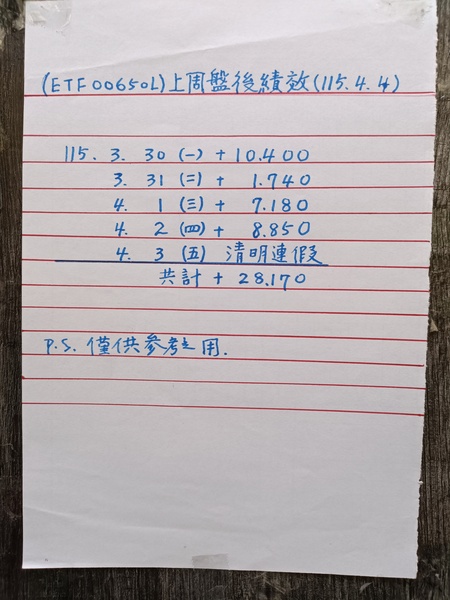 (ETF00650L)上周盤後績效(115.4.4)
115. 3. 30 (一) + 10.400
3. 31 (二) + 1.740
4. 1 (三) + 7.180
4. 2 (四) + 8.850
4. 3 (五) 清明連假
共計 + 28.170
P.S. 僅供參考之用.